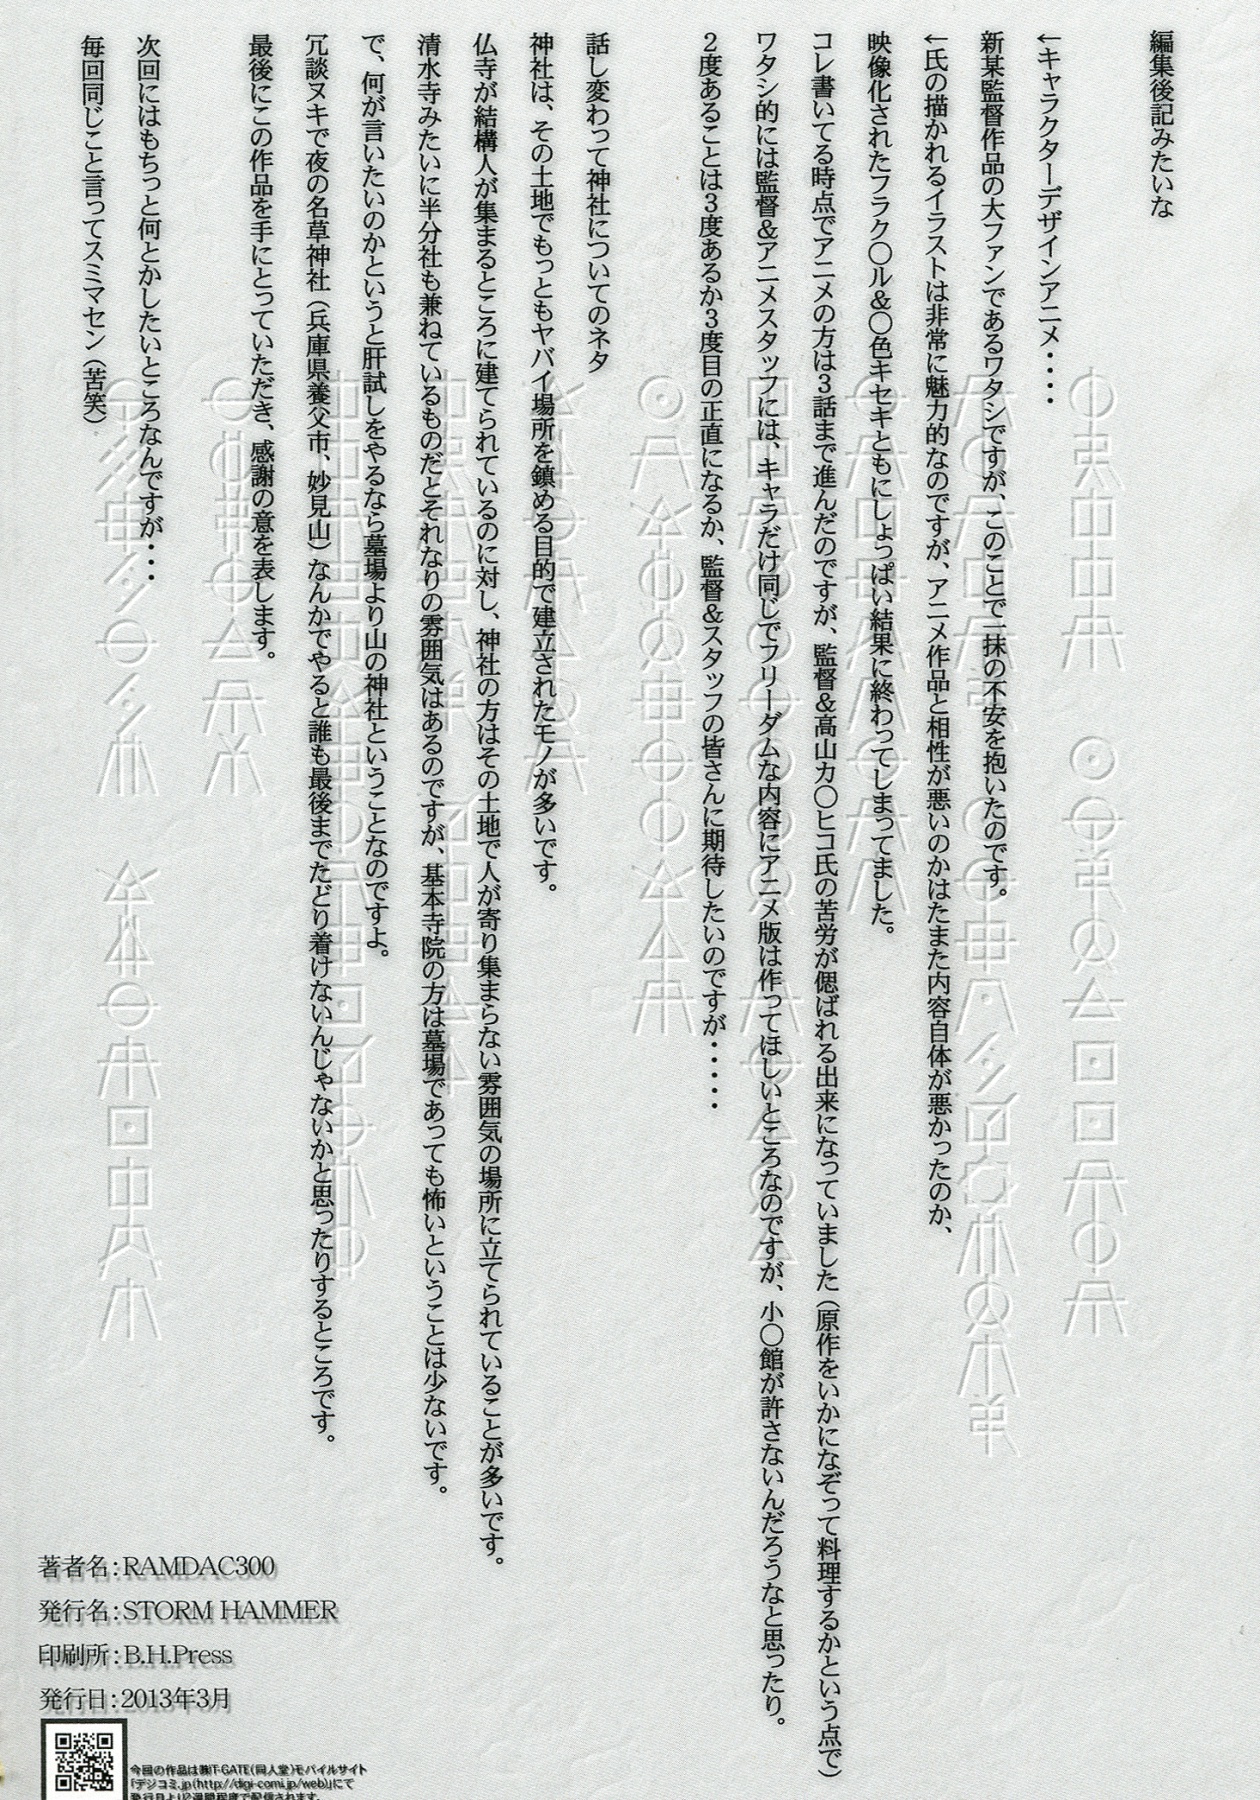 編集後記みたいな
←キャラクターデザインアニメ・・・・
新某監督作品の大ファンであるワタシですが、このことで一抹の不安を抱いたのです。
←氏の描かれるイラストは非常に魅力的なのですが、アニメ作品と相性が悪いのかはたまた内容自体が悪かったのか、
映像化されたフラク〇ル＆〇色キセキともにしょっぱい結果に終わってしまってました。
コレ書いてる時点でアニメの方は３話まで進んだのですが、監督＆高山カ〇ヒコ氏の苦労が偲ばれる出来になっていました（原作をいかになぞって料理するかという点で）
ワタシ的には監督＆アニメスタッフには、キャラだけ同じでフリーダムな内容にアニメ版は作ってほしいところなのですが、小〇館が許さないんだろうなと思ったり。
２度あることは３度あるか３度目の正直になるか、監督＆スタッフの皆さんに期待したいのですが・・・・・
話し変わって神社についてのネタ
神社は、その土地でもっともヤバイ場所を鎮める目的で建立されたモノが多いです。
仏寺が結構人が集まるところに建てられているのに対し、神社の方はその土地で人が寄り集まらない雰囲気の場所に立てられていることが多いです。
清水寺みたいに半分社も兼ねているものだとそれなりの雰囲気はあるのですが、基本寺院の方は墓場であっても怖いということは少ないです。
で、何が言いたいのかというと肝試しをやるなら墓場より山の神社ということなのですよ。
冗談ヌキで夜の名草神社（兵庫県養父市、妙見山）なんかでやると誰も最後までたどり着けないんじゃないかと思ったりするところです。
最後にこの作品を手にとっていただき、感謝の意を表します。
次回にはもちっと何とかしたいところなんですが・・・
毎回同じこと言ってスミマセン（苦笑）
著者名：RAMDAC300
発行名：STORM HAMMER
印刷所：B.H.Press
発行日：2013年3月
今回の作品は㈱T-GATE（同人堂）モバイルサイト
「デジコミ.jp（http://digi-comi.jp/web）」にて
発行日より2週間程度で配信されます。